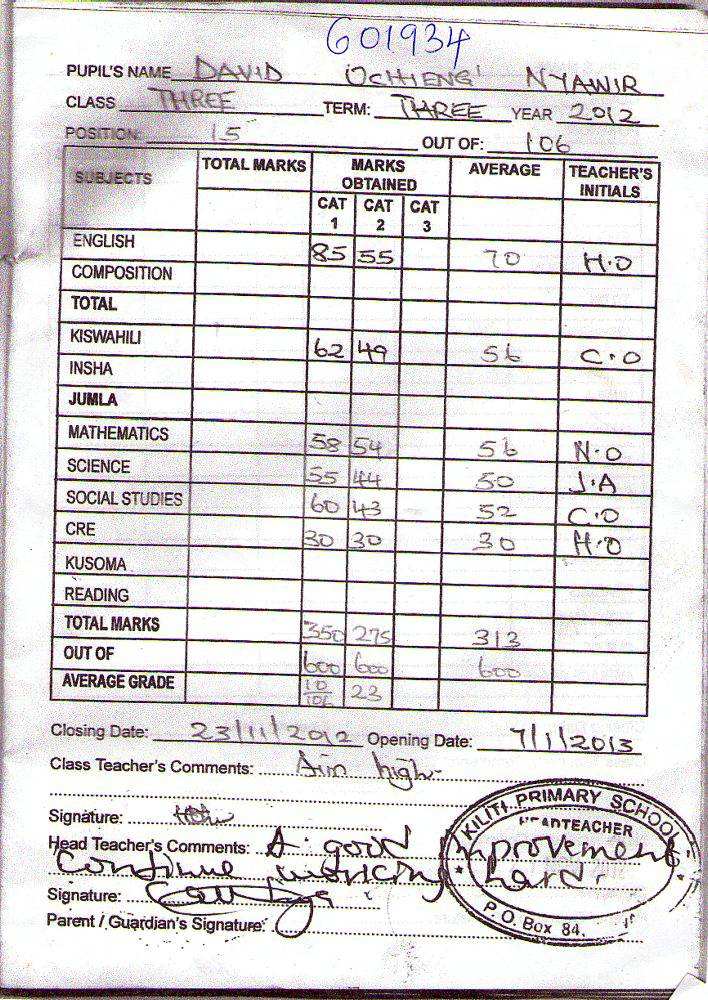 601934
PUPIL'S NAME DAVID OCHIENG' NYAWIR
CLASS THREE TERM: THREE YEAR 2012
POSITION: 15 OUT OF: 106
SUBJECTS TOTAL MARKS MARKS OBTAINED AVERAGE TEACHER'S INITIALS
CAT 1 CAT 2 CAT 3
ENGLISH 85 55 70 H.O
COMPOSITION
TOTAL
KISWAHILI 62 49 56 C.O
INSHA
JUMLA
MATHEMATICS 58 54 56 N.O
SCIENCE 55 44 50 J.A
SOCIAL STUDIES 60 43 52 C.O
CRE 30 30 30 H.O
KUSOMA
READING
TOTAL MARKS 350 275 313
OUT OF 600 600 600
AVERAGE GRADE 10/106 23
Closing Date: 23/11/2012 Opening Date: 7/1/2013
Class Teacher's Comments: Aim high.
Signature:
Head Teacher's Comments: A good improvement
Continue working hard.
Signature:
Parent / Guardian's Signature:
KILITI PRIMARY SCHOOL
HEADTEACHER
P.O. Box 84,